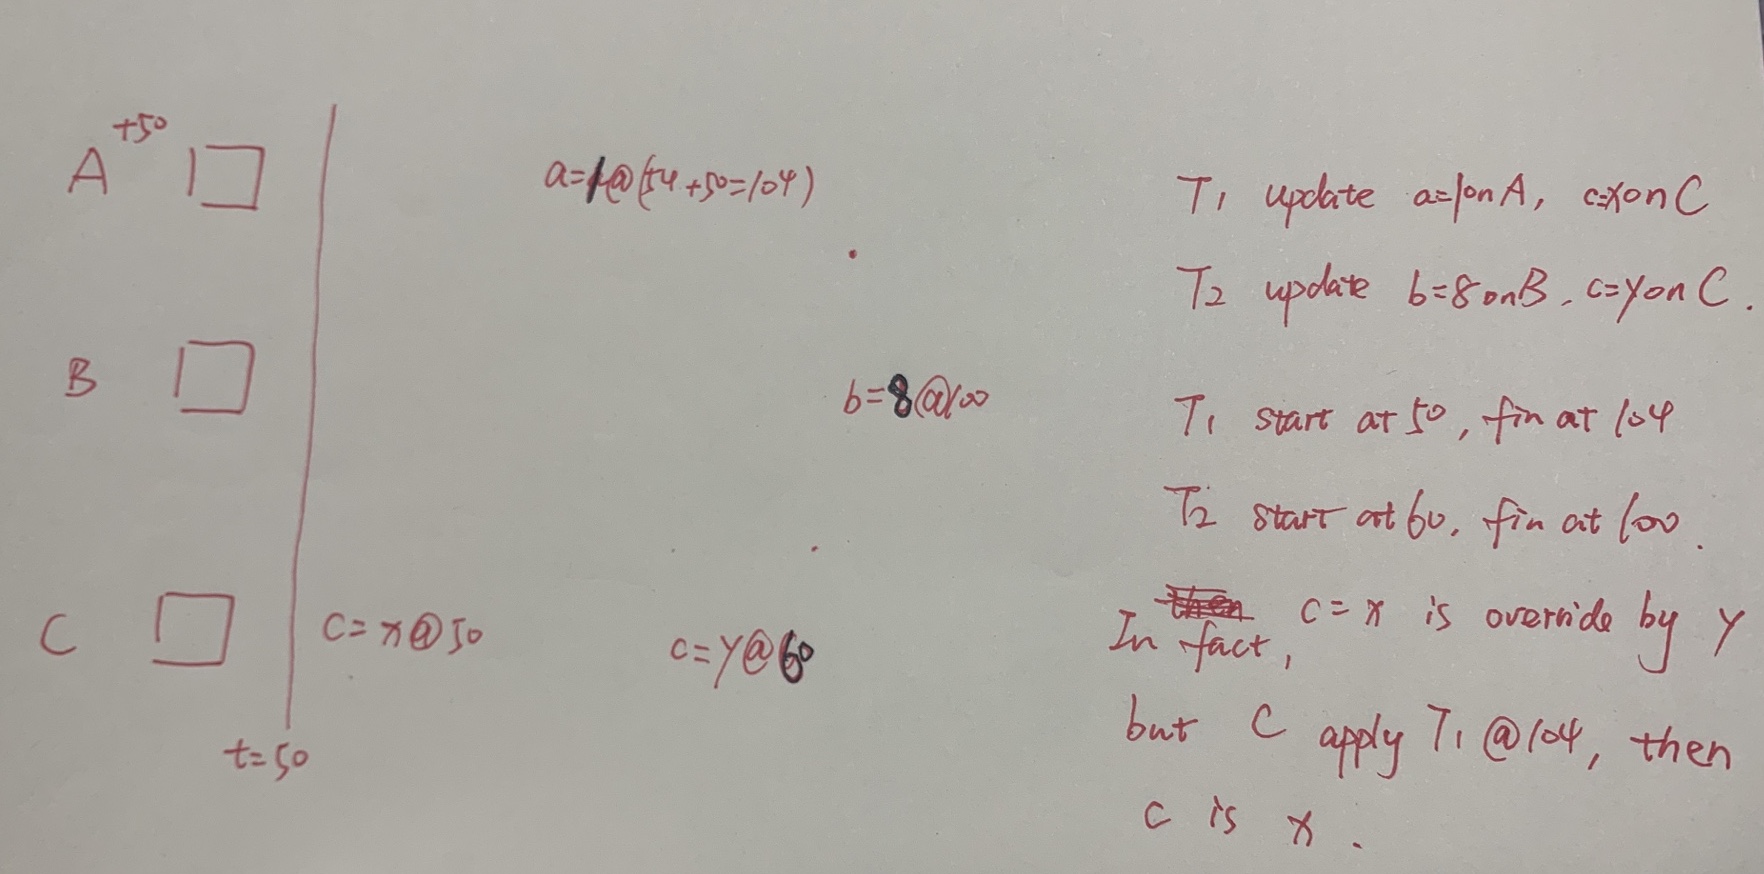 A +50
a=1@(54+50=104)
B
b=8@100
C
c=x@50
c=y@60
t=50
T1 update a=1onA, c=xonC
T2 update b=8onB, c=yonC.
T1 start at 50, fin at 104
T2 start at 60, fin at 100.
In fact, c=x is override by y
but C apply T1@104, then
c is x.